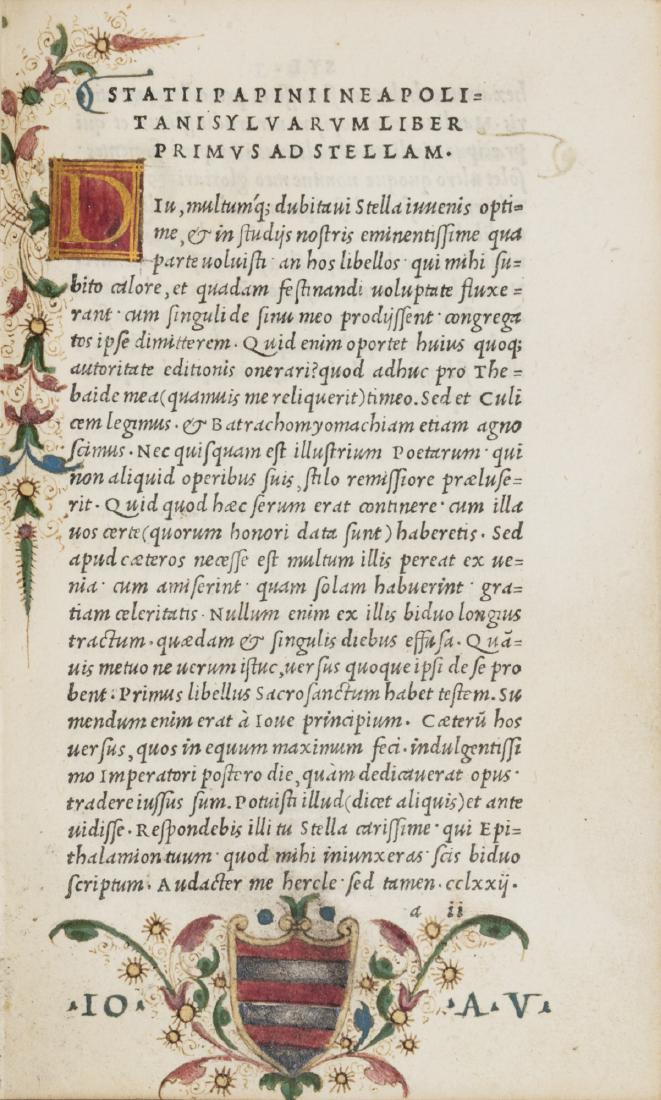 STATII PAPINII NEAPOLI=
TANI SYLVARVM LIBER
PRIMVS AD STELLAM.
DIu, multumq́; dubitaui Stella iuuenis opti=
me, & in studijs nostris eminentissime qua
parte uoluisti · an hos libellos · qui mihi su=
bito calore, et quadam festinandi uoluptate fluxe=
rant · cum singuli de sinu meo prodijssent · congrega
tos ipse dimitterem. Quid enim oportet huius quoq;
autoritate editionis onerari? quod adhuc pro The=
baide mea (quamuis me reliquerit) timeo. Sed et Culi
cem legimus · & Batrachomyomachiam etiam agno
scimus · Nec quisquam est illustrium Poetarum · qui
non aliquid operibus suis, stilo remissiore præluse=
rit · Quid quod hæc serum erat continere · cum illa
uos certe (quorum honori data sunt) haberetis · Sed
apud cæteros necesse est multum illis pereat ex ue=
nia · cum amiserint · quam solam habuerint · gra=
tiam celeritatis · Nullum enim ex illis biduo longius
tractum · quædam & singulis diebus effusa · Quā=
uis metuo ne uerum istuc, uersus quoque ipsi de se pro
bent · Primus libellus Sacrosanctum habet testem. Su
mendum enim erat à Ioue principium · Cæterū hos
uersus, quos in equum maximum feci · indulgentissi
mo Imperatori postero die, quàm dedicauerat opus ·
tradere iussus sum. Potuisti illud (dicet aliquis) et ante
uidisse · Respondebis illi tu Stella carissime · qui Epi=
thalamion tuum · quod mihi iniunxeras · scis biduo
scriptum · Audacter me hercle · sed tamen · cclxxij ·
a ii
·IO· ·A·V·